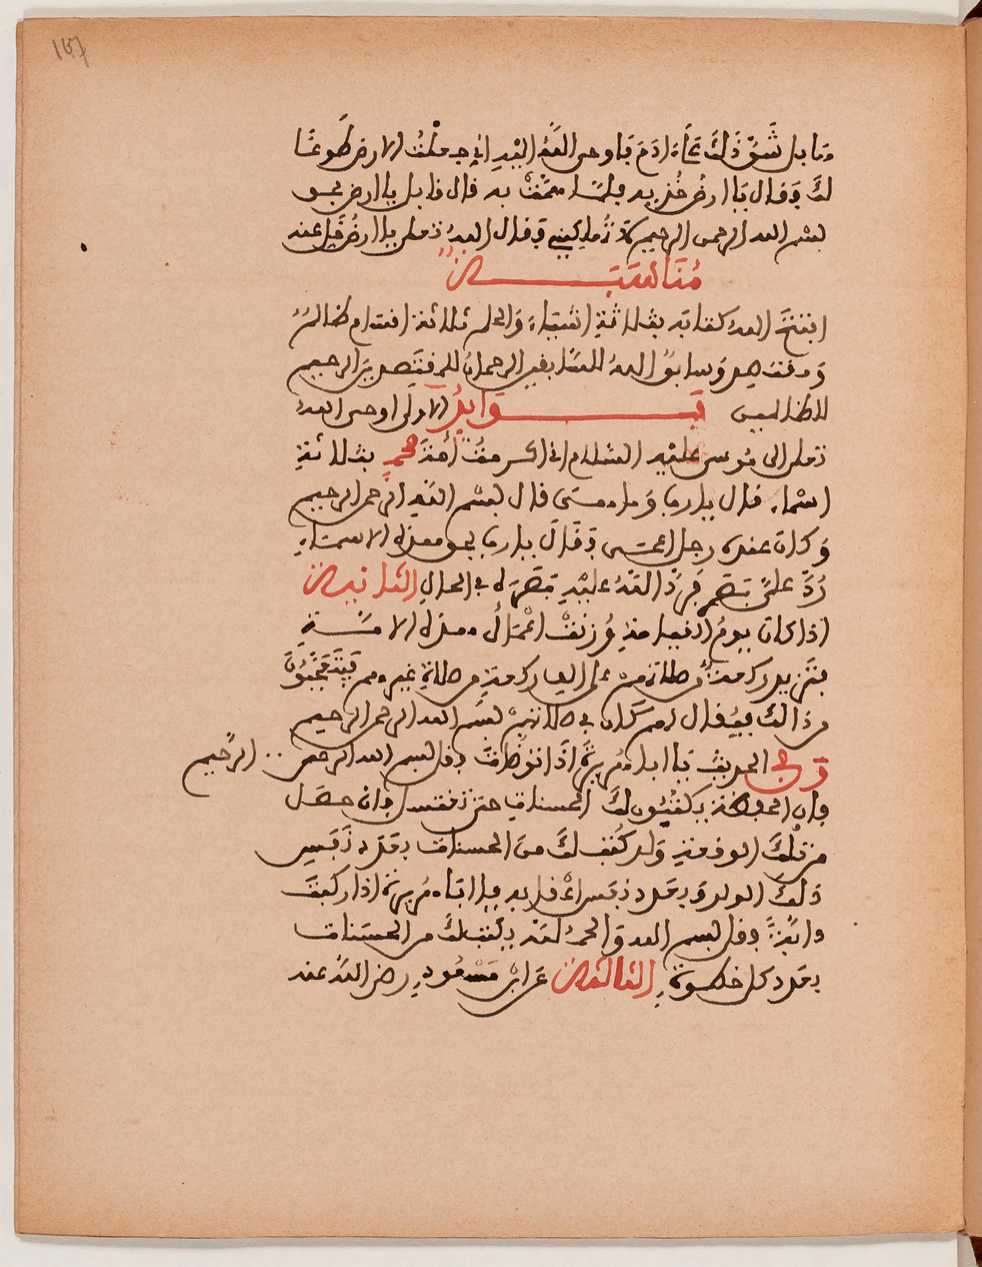 157
وما بل شق ذلك فجاء ادم فاوحى الله اليه اني جعلت الارض طوعا
لك فقال يا ارض خذيه فلما سمعت به قال قابل يا ارض بحق
بسم الله الرحمن الرحيم لا تهلكيني فقال الله تعلى يا ارض خل عنه
مناسبة
افتتح الله كتابه بثلاثة اشياء والحلم ثلاثة اقسام ظالم
ومقتصد وسابق الله للسابقين الرحمان للمقتصدين الرحيم
للظالمين فوائد الاولى اوحى الله
تعلى الى موسى عليه السلام اني اكرمت امة محمد بثلاثة
اسماء قال يا رب وما هي قال بسم الله الرحمن الرحيم
وكان عنده رجل اعمى فقال يا رب بحق هذه الاسماء
رد علي بصري فرد الله عليه بصره في الحال الثانية
اذا كان يوم القيامة وزنت اعمال هذه الامة
فتزيد ركعة من صلاتهم على الف ركعة من صلاة غيرهم فيتعجبون
من ذالك فيقال لهم كان في صلاتهم بسم الله الرحمن الرحيم
وفي الحديث يا ابا هريرة اذا توضات فقل بسم الله الرحمن .. الرحيم
فان الحفظة يكتبون لك الحسنات حتى تغتسل فان حصل
من تلك الوقعة ولد كتب لك من الحسنات بعدد نفس
ذلك الولد وبعدد نفس اعقابه يا ابا هريرة اذا ركبت
دابة فقل بسم الله والحمد لله يكتب لك من الحسنات
بعدد كل خطوة الثالثة عن ابن مسعود رضي الله عنه